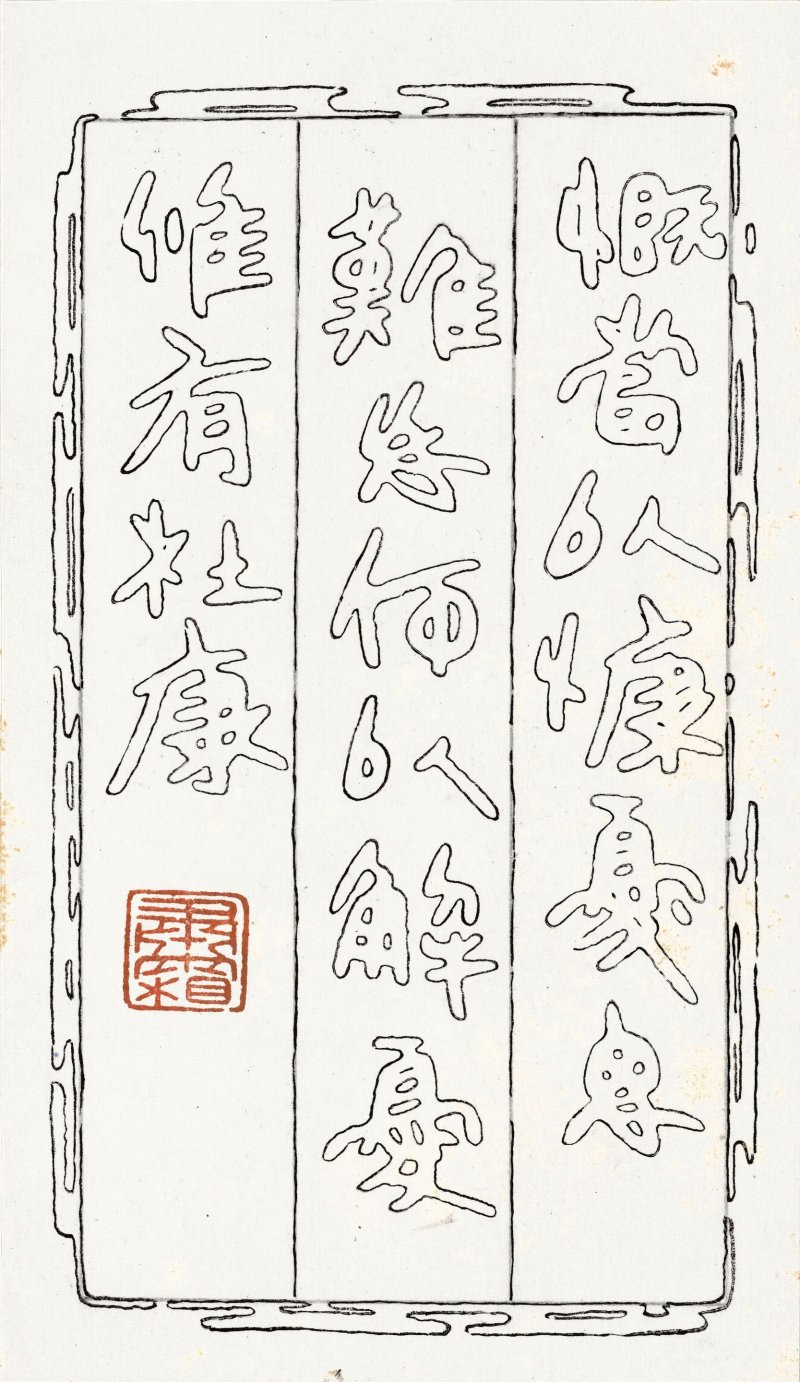 慨當以慷憂思
難忘何以解憂
惟有杜康